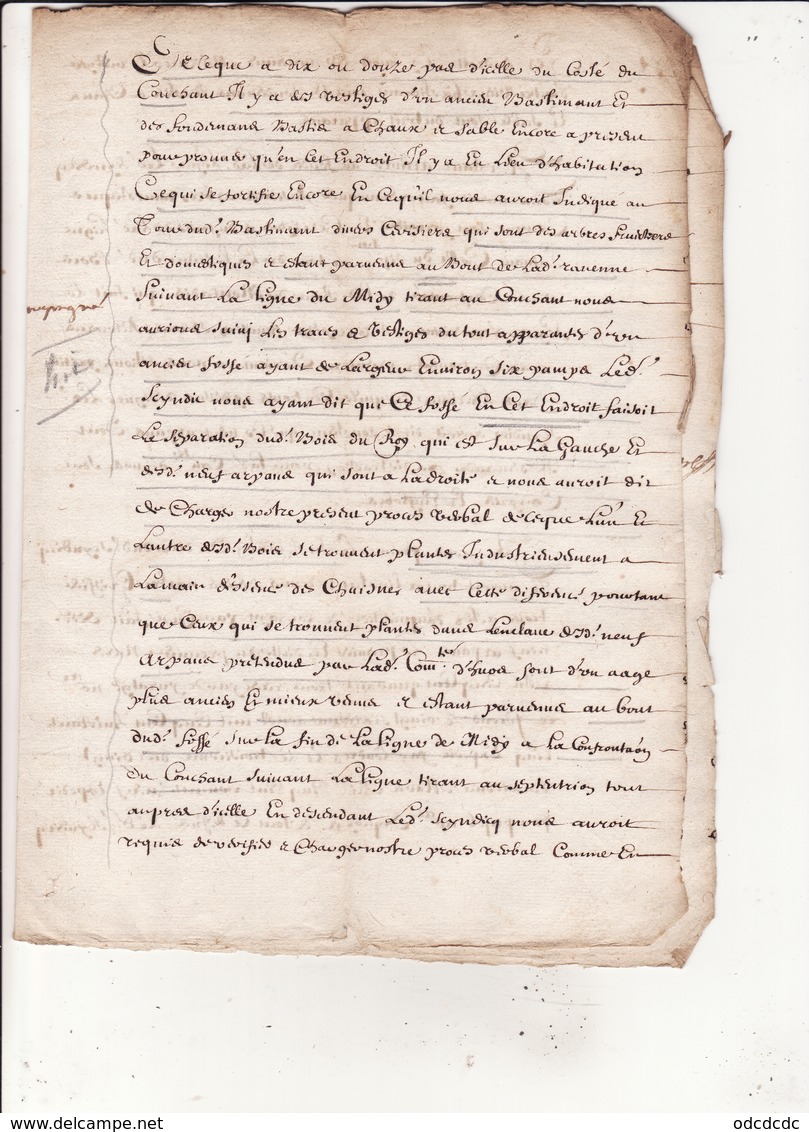 Et Ceque a dix ou douze pas d'icelle du Costé du
Couchant Il y a des vestiges d'un ancien Bastimant Et
des fondemans Bastis a Chaux et sable Encore a present
pour prouver qu'en Cet Endroit Il y a Eu Lieu d'habitation
Cequi se fortifie Encore En Cequ'il nous auroit Indiqué au
Tour dud. Bastimant divers Cerisiers qui sont des arbres fruitiers
Et domestiques et estant parvenus au Bout de Lad. ravenne
suivant La Ligne du Midy tirant au Couchant nous
aurions suivj Les traces et Vestiges du tout apparantes d'un
ancien fossé ayant de Largeur Environ six pamps Led.
scyndic nous ayant dit que Ce fossé En Cet Endroit faisoit
La separation dud. Bois du Roy qui est sur La Gauche Et
desd. neuf arpans qui sont a La droite et nous auroit dit
de Charger nostre present proces verbal de Ceque L'un Et
L'autre desd. Bois se trouvent plantés Industrieusement a
La main d'essence de Chaisnes avec Cette diferenc. pourtant
que Ceux qui se trouvent plantés dans L'enclave desd. neuf
arpans prétendus par Lad. Com.té d'huos sont d'un aage
plus ancien Et mieux venus et estant parvenus au bout
dud. fossé sur La fin de La Ligne de Midy a La Confrontaon
du Couchant suivant La Ligne tirant au septentrion tout
aupres d'icelle En descendant Led. scyndicq nous auroit
requis de verifier et Charger nostre proces verbal Comme En